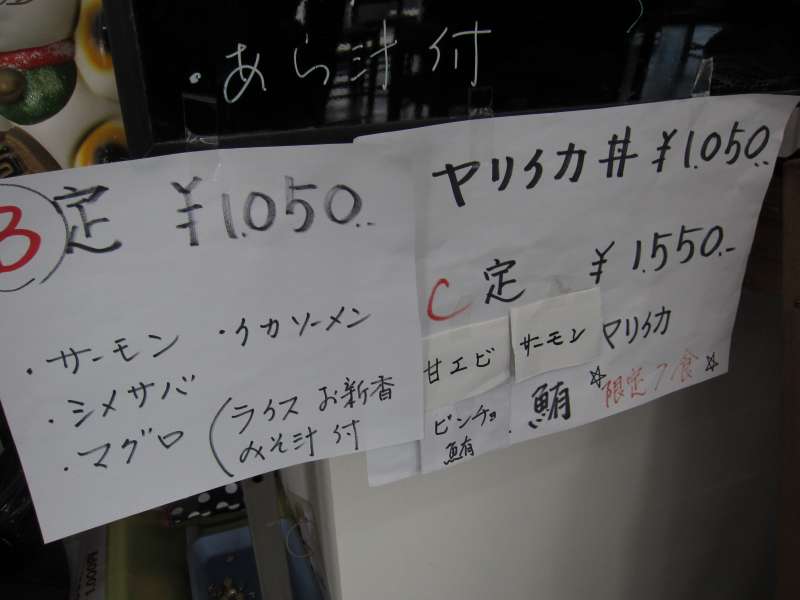 ・あら汁付
B定 ¥1.050.-
・サーモン ・イカソーメン
・シメサバ
・マグロ (ライス お新香
みそ汁付
ヤリイカ丼 ¥1.050.-
C定 ¥1.550.-
甘エビ サーモン ヤリイカ
ビンチョ鮪 鮪 ☆限定7食☆
1.000円